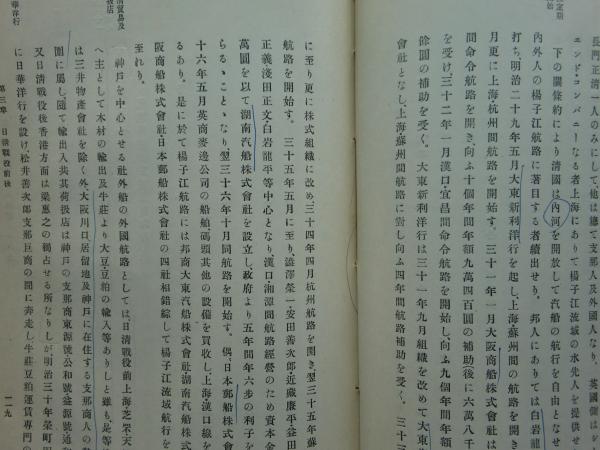 長門正清一人のみにして他は總て支那人及外國人なり、英國側は
エンド・コンパニーなる者上海にありて楊子江流域の水先人を提供せ
下の關條約により清國は内河を開放して汽船の航行を自由となせ
内外人の楊子江航路に著目する者續出せり。邦人にありては白岩龍
打ち、明治二十九年五月大東新利洋行を起し、上海蘇州間の航路を開き
月更に上海杭州間航路を開始す。三十一年一月大阪商船株式會社は
間命令航路を開き、向ふ十個年間年額九萬四百圓の補助後に六萬八千
を受け、三十二年一月漢口・宜昌間命令航路を開始し、向ふ九個年間年額
餘圓の補助を受く。大東新利洋行は三十一年九月組織を改めて大東汽
會社となし、上海蘇州間航路に對し向ふ四年間航路補助を受く。三十三
に至り更に株式組織に改め三十四年四月杭州航路を開き、翌三十五年蘇
航路を開始す。三十五年五月に至り澁澤榮一・安田善次郎・近藤廉平・益田
正義・淺田正文・白岩龍平等中心となり、漢口湘潭間航路經營のため資本金
萬圓を以て湖南汽船株式會社を設立し政府より五年間年六步の利子を
らるゝことゝなり、翌三十六年十月同航路を開始す。偶、日本郵船株式會
十六年五月英商麥邊公司の船舶碼頭其他の設備を買收し、上海漢口線を
るあり。是に於て楊子江航路には邦商大東汽船株式會社湖南汽船株式
阪商船株式會社日本郵船株式會社の四社相錯綜して楊子江流域航行を
至れり。
神戸を中心とせる社外船の外國航路としては、日清戰役前上海芝罘天
へ主として木材の輸出及牛莊より大豆豆粕の輸入等ありしと雖も、是等
は三井物產會社を除く外、大阪川口居留地及神戸に在住する支那商人の勢
圍に屬し、隨て輸出入共其荷扱店は神戸の支那商東源號公和號益源號通
又日清戰役後香港方面は梁惠之の獨占せる所なりしが明治三十年榮町
に日華洋行を設け松井善次郎支那巨商の間に奔走し、牛莊豆粕運賃專門の
第三章 日清戰役前後
一一九